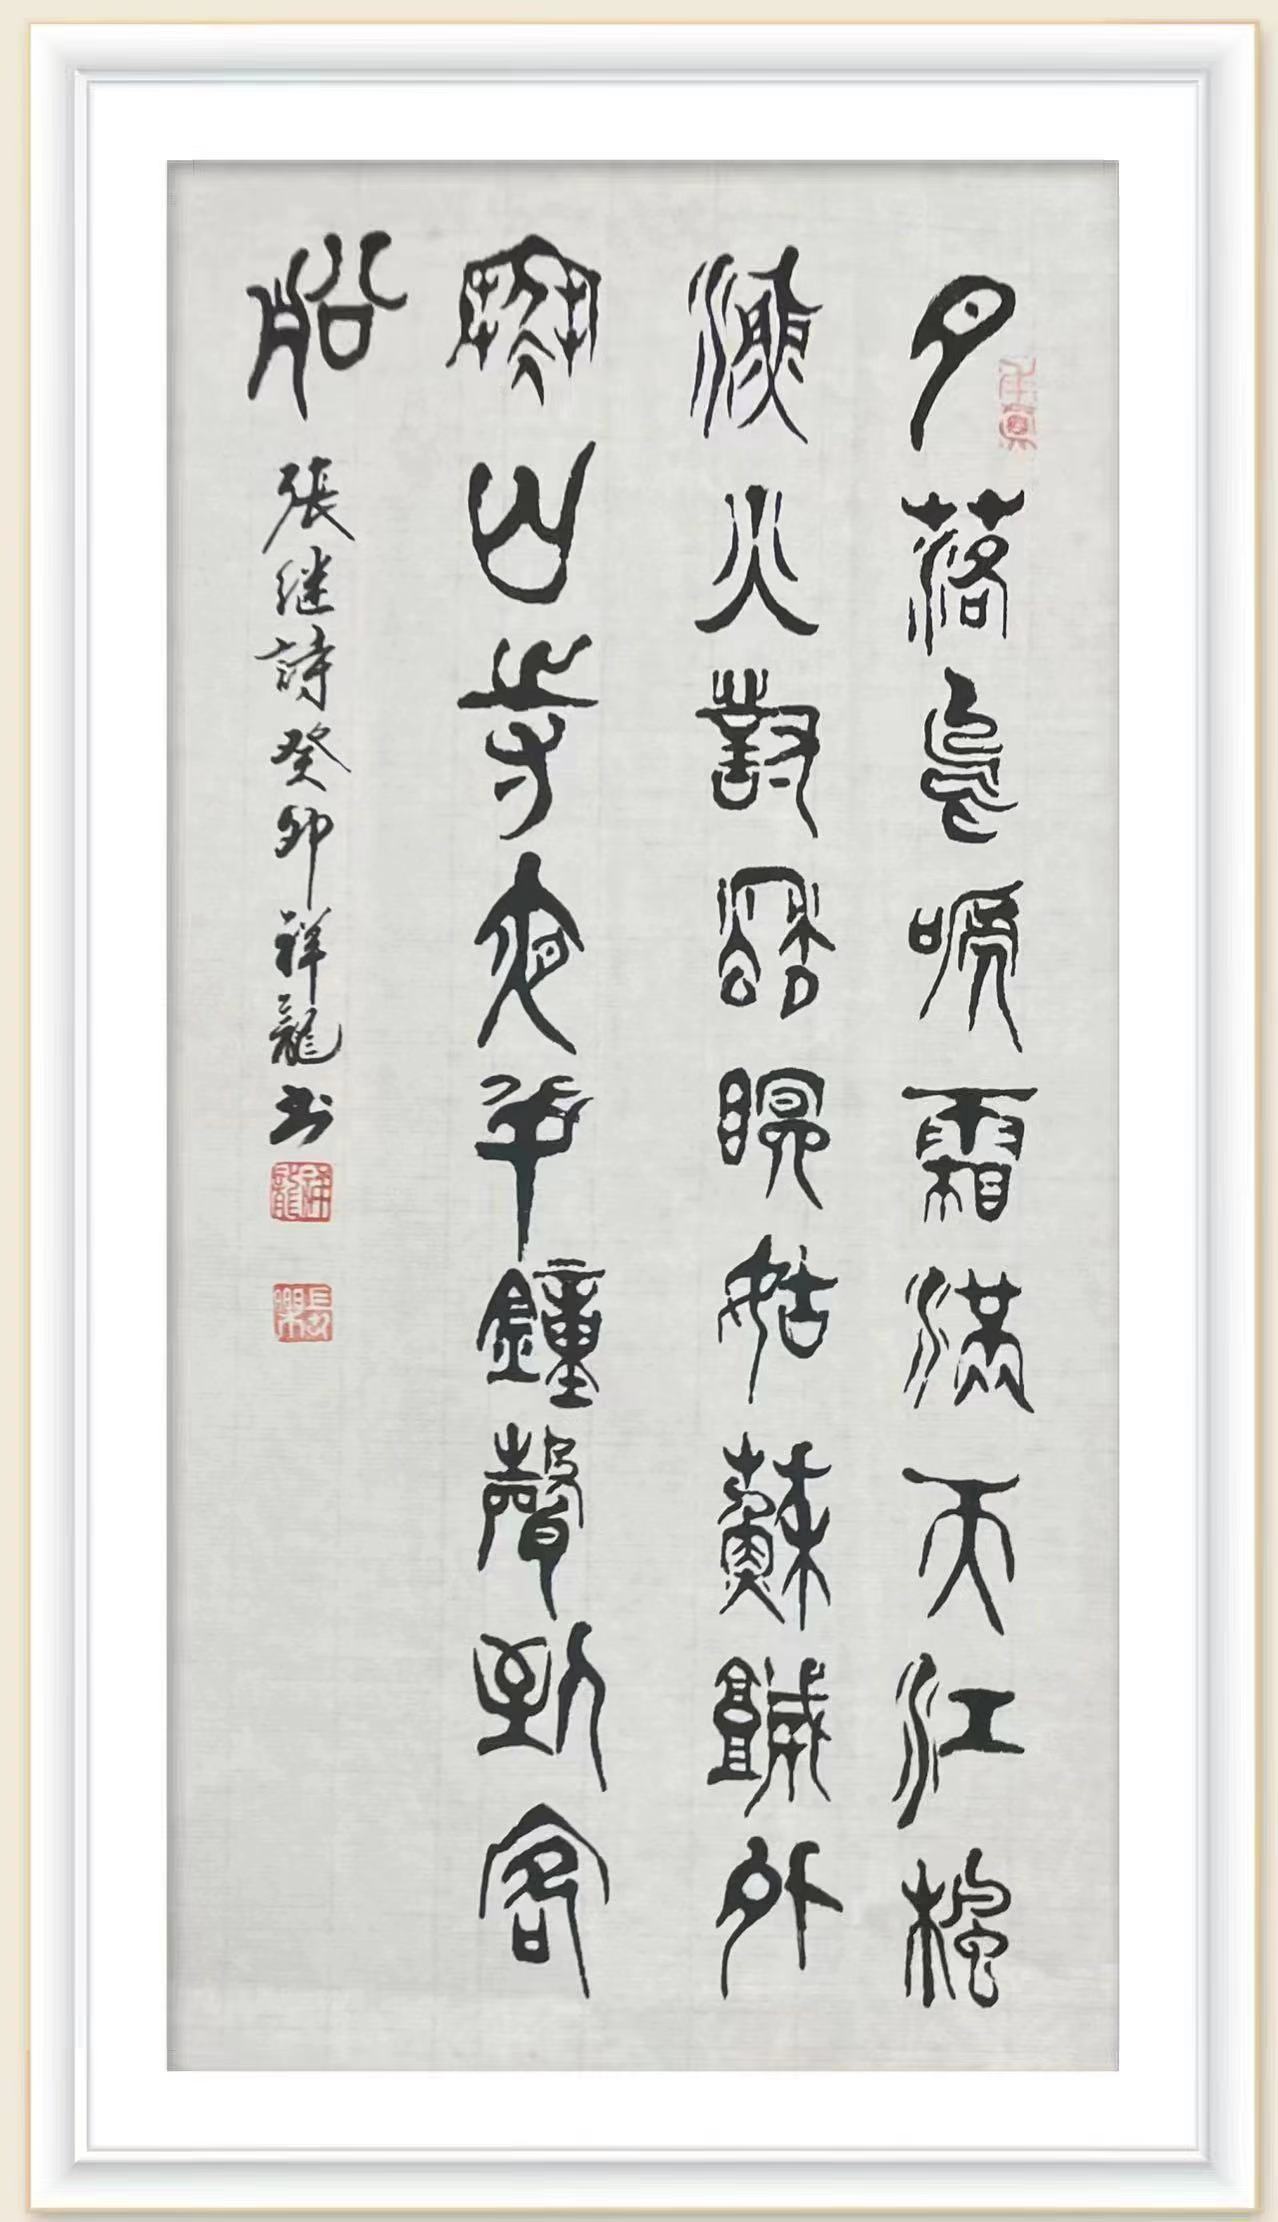 月落烏啼霜滿天江楓
漁火對愁眠姑蘇城外
寒山寺夜半鐘聲到客
船
張继詩癸卯祥龍书
長樂